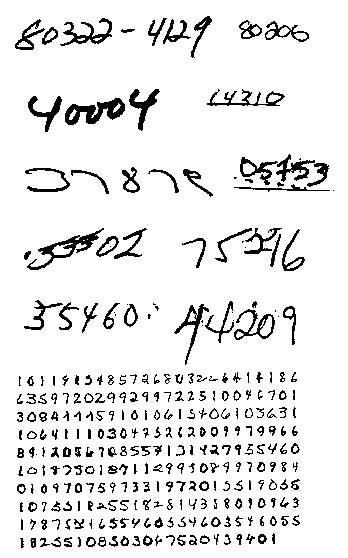 80322-4129 80206
40004 14310
37878
75216
35460 44209
1011913485726803226414186
6359720299299722510046701
3084111591010615406103631
1064111030475262009979966
8912056708557131427955460
1018730187112991089970984
0109707597331972015519055
1075318255182814358090963
1787521655460354603546055
18255108503047520439401